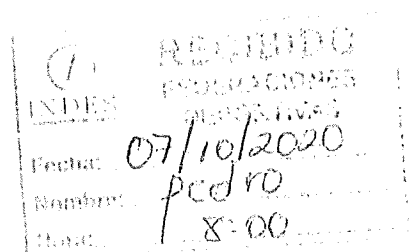 RECIBIDO
INDES FEDERACIONES
DEPORTIVAS
Fecha: 07/10/2020
Nombre: Pedro
Hora: 8:00